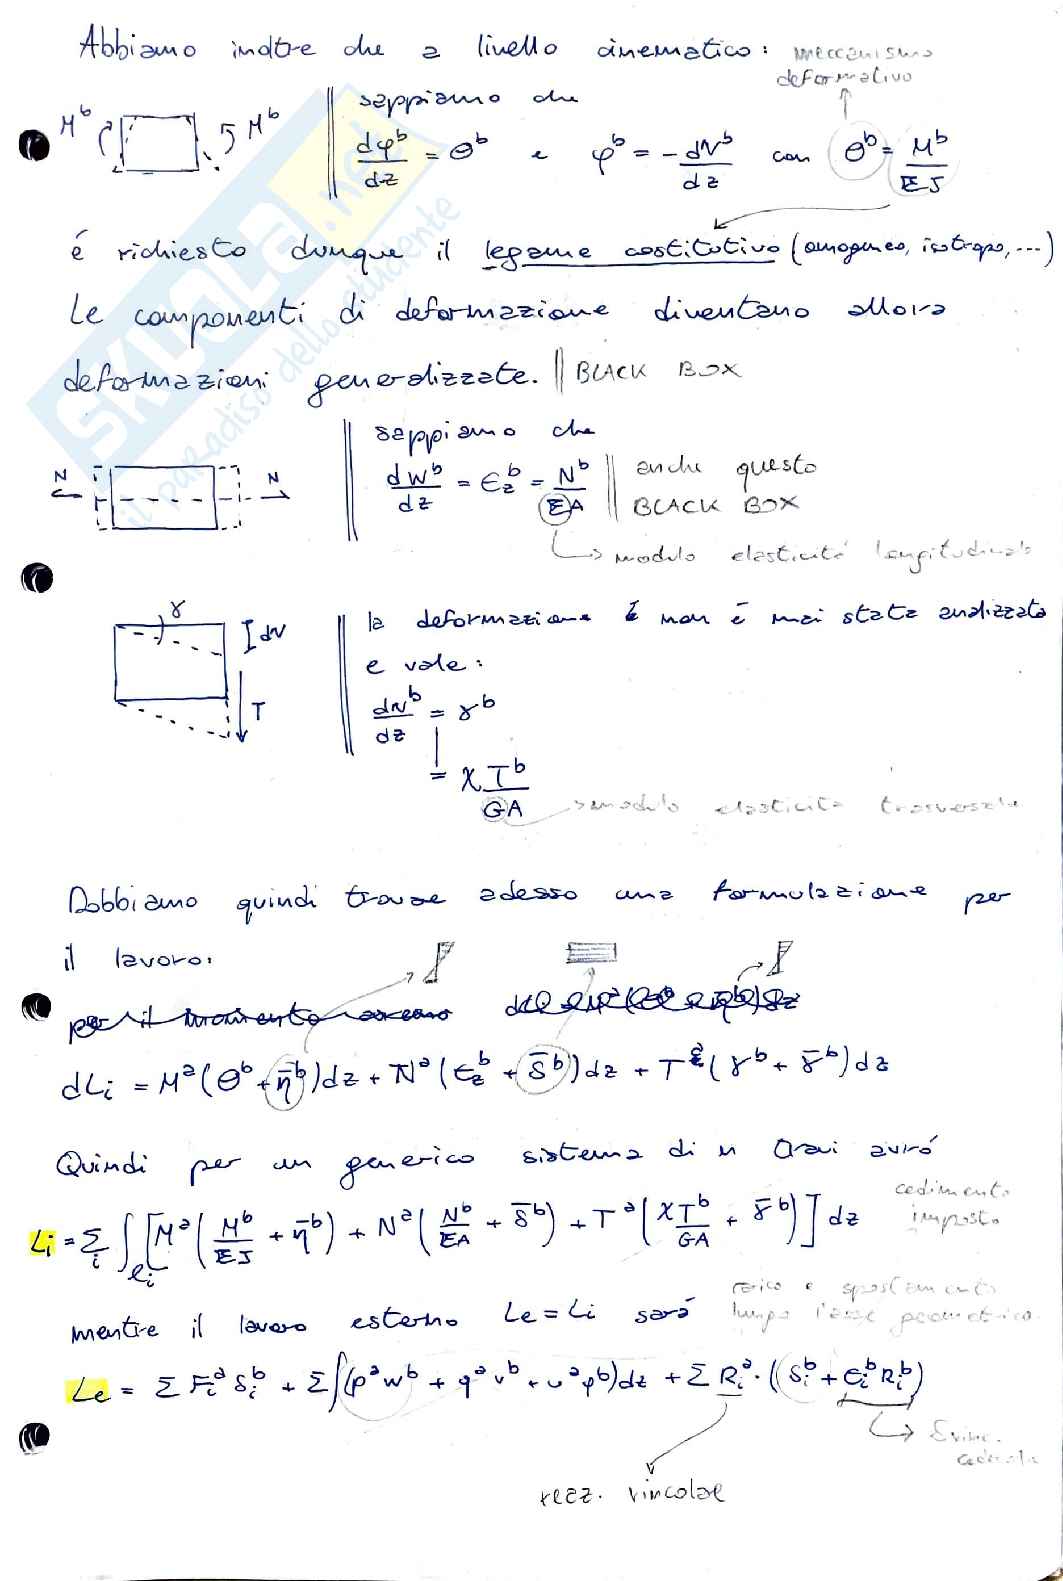 Abbiamo inoltre che a livello cinematico: meccanismo
deformativo
M^b M^b
sappiamo che
dφ^b/dz = Θ^b e φ^b = -dv^b/dz con Θ^b = M^b/EJ
é richiesto dunque il legame costitutivo (omogeneo, isotropo, ...)
Le componenti di deformazione diventano allora
deformazioni generalizzate. || BLACK BOX
sappiamo che
N N
dw^b/dz = ε_z^b = N^b/EA || anche questo
BLACK BOX
modulo elasticitá longitudinale
γ
dv
T
la deformazione é non é mai stata analizzata
e vale:
dv^b/dz = γ^b
= χT^b/GA
modulo elasticitá trasversale
Dobbiamo quindi trovare adesso una formulazione per
il lavoro.
per il momento
dLi = M^a(Θ^b + η̄^b)dz + N^a(ε_z^b + δ̄^b)dz + T^a(γ^b + γ̄^b)dz
Quindi per un generico sistema di n travi avró
cedimento
imposto
Li = Σ_i ∫_li [M^a(M^b/EJ + η̄^b) + N^a(N^b/EA + δ̄^b) + T^a(χT^b/GA + γ̄^b)] dz
carico e spostamento
lungo l'asse geometrico.
mentre il lavoro esterno Le = Li sará
Le = Σ F_i^a δ_i^b + Σ∫(p^a w^b + q^a v^b + u^a φ^b)dz + Σ R_i^a · (δ_i^b + ε_i^b R_i^b)
reaz. vincolare
SKUOLA.net
il paradiso dello studente